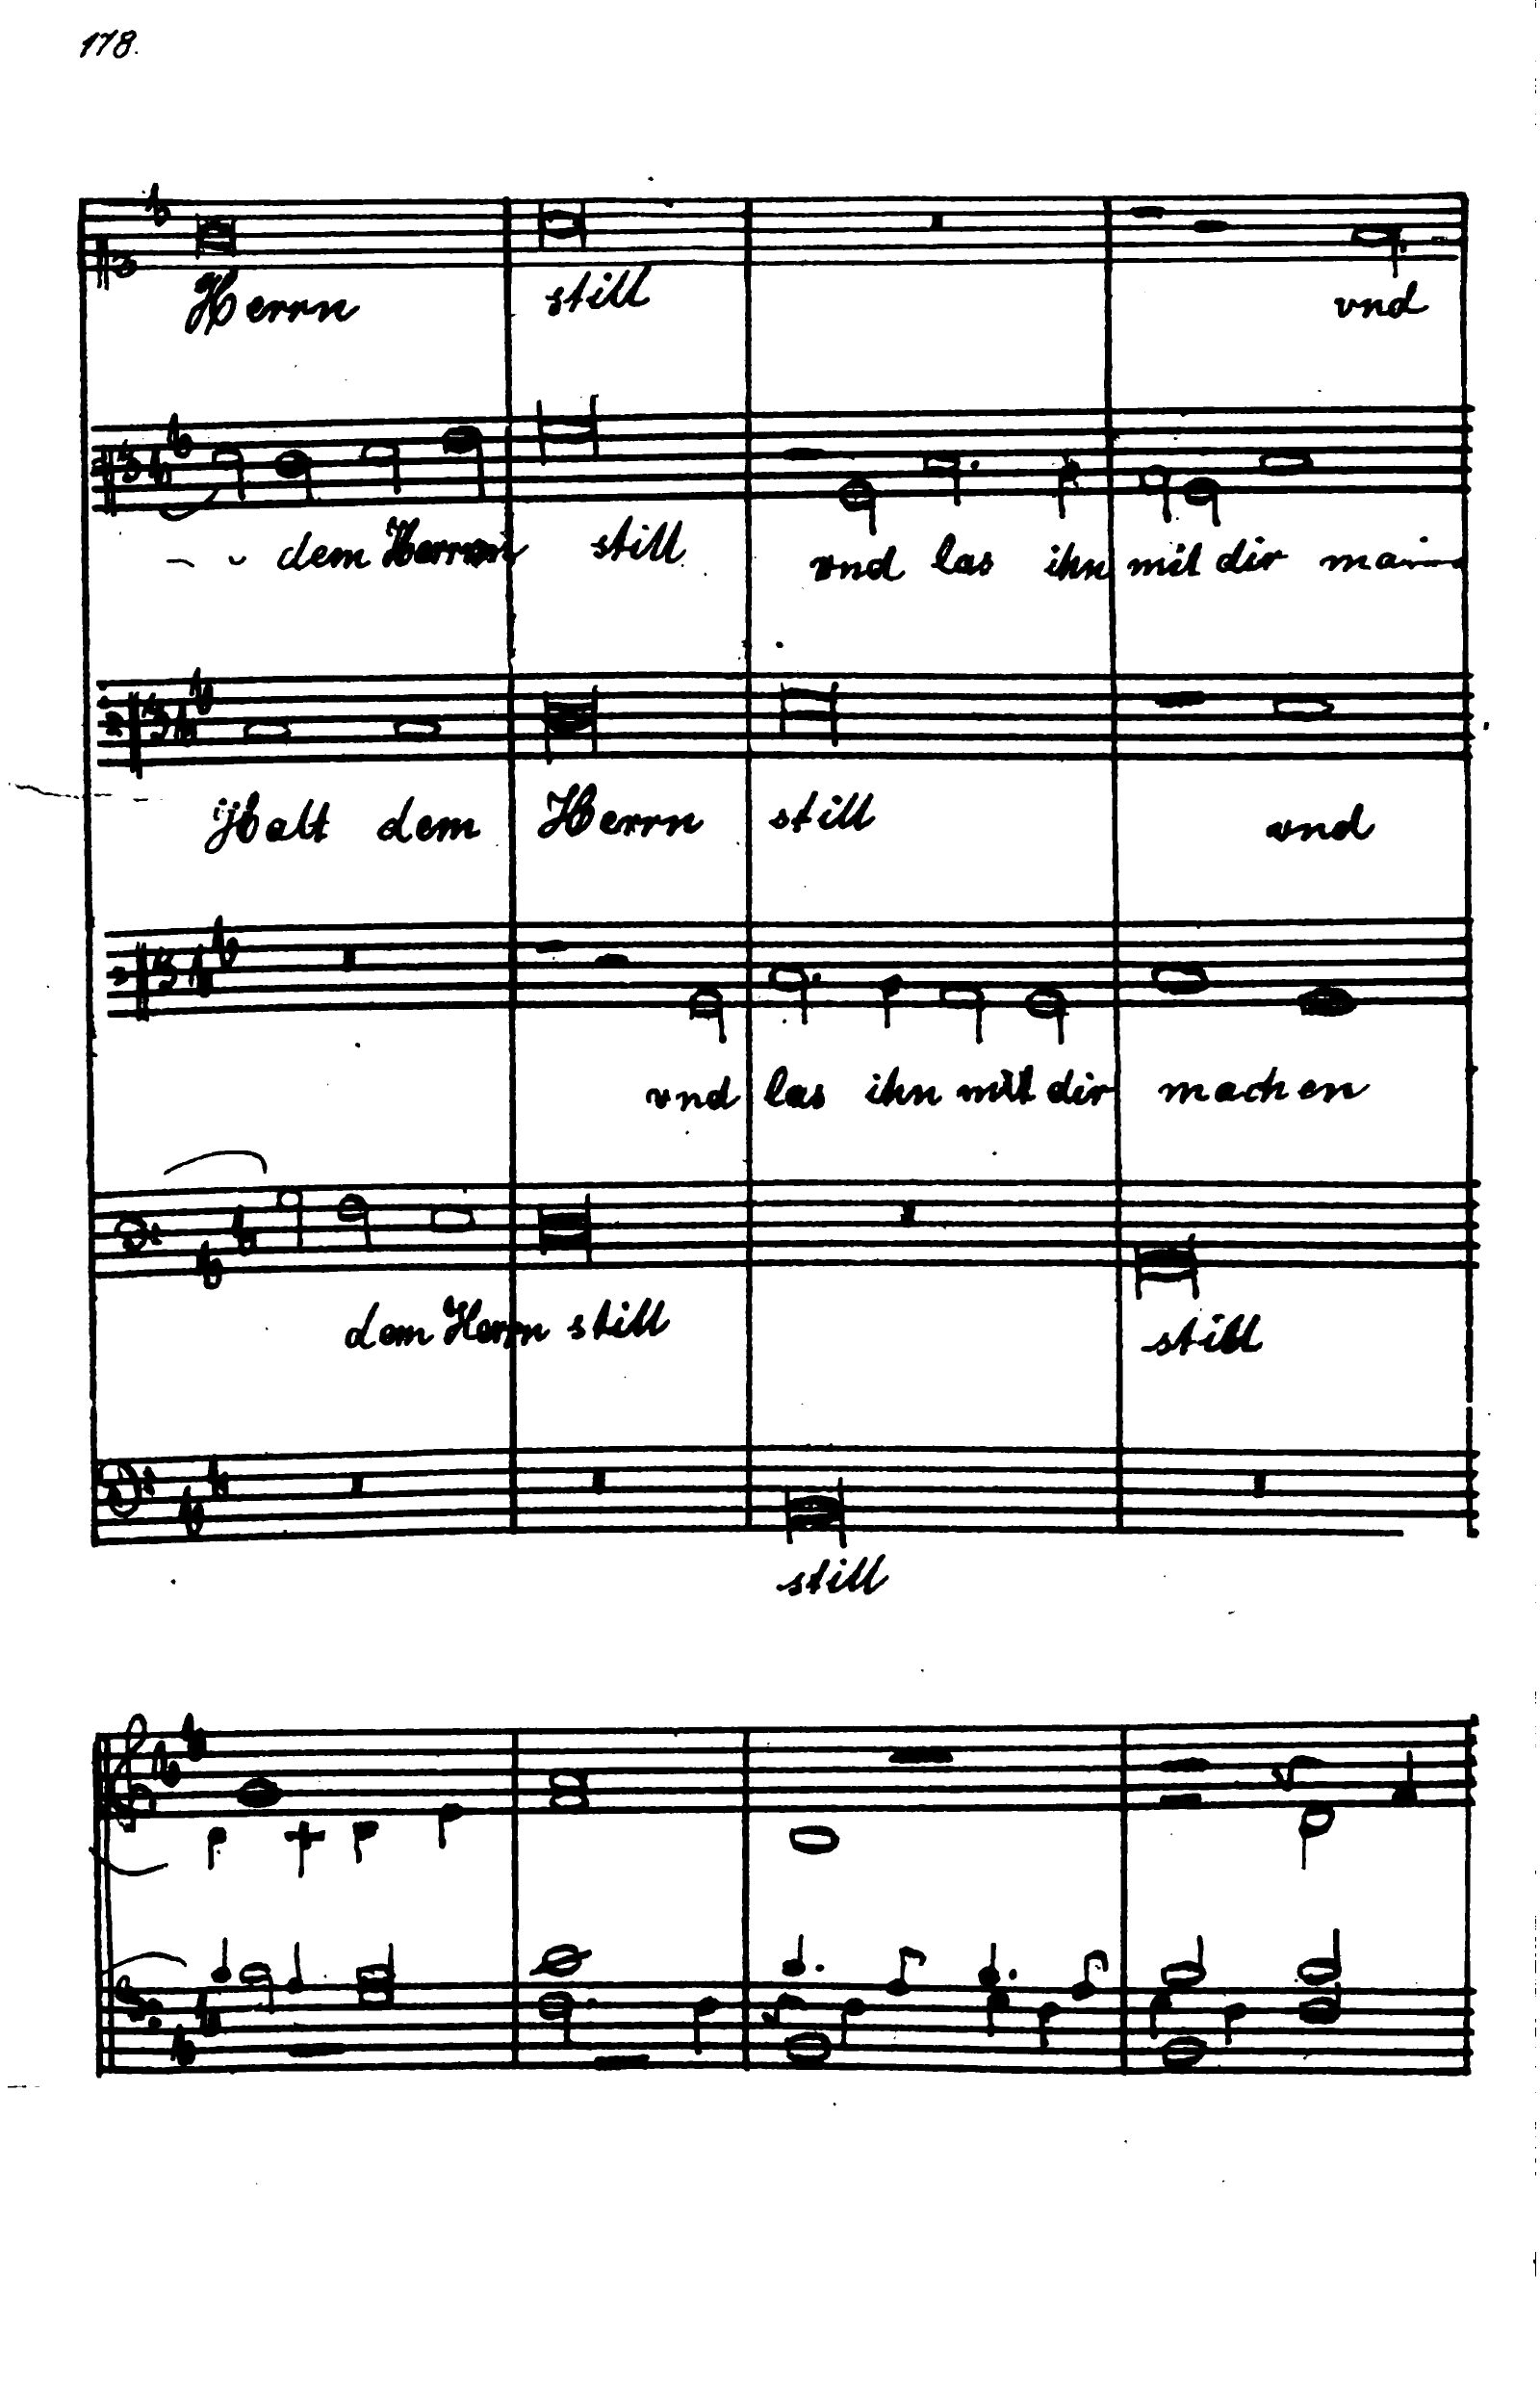 178.
Herrn still vnd
dem Herrn still vnd las ihn mit dir ma
Halt dem Herrn still vnd
vnd las ihn mit dir machen
dem Herrn still still
still